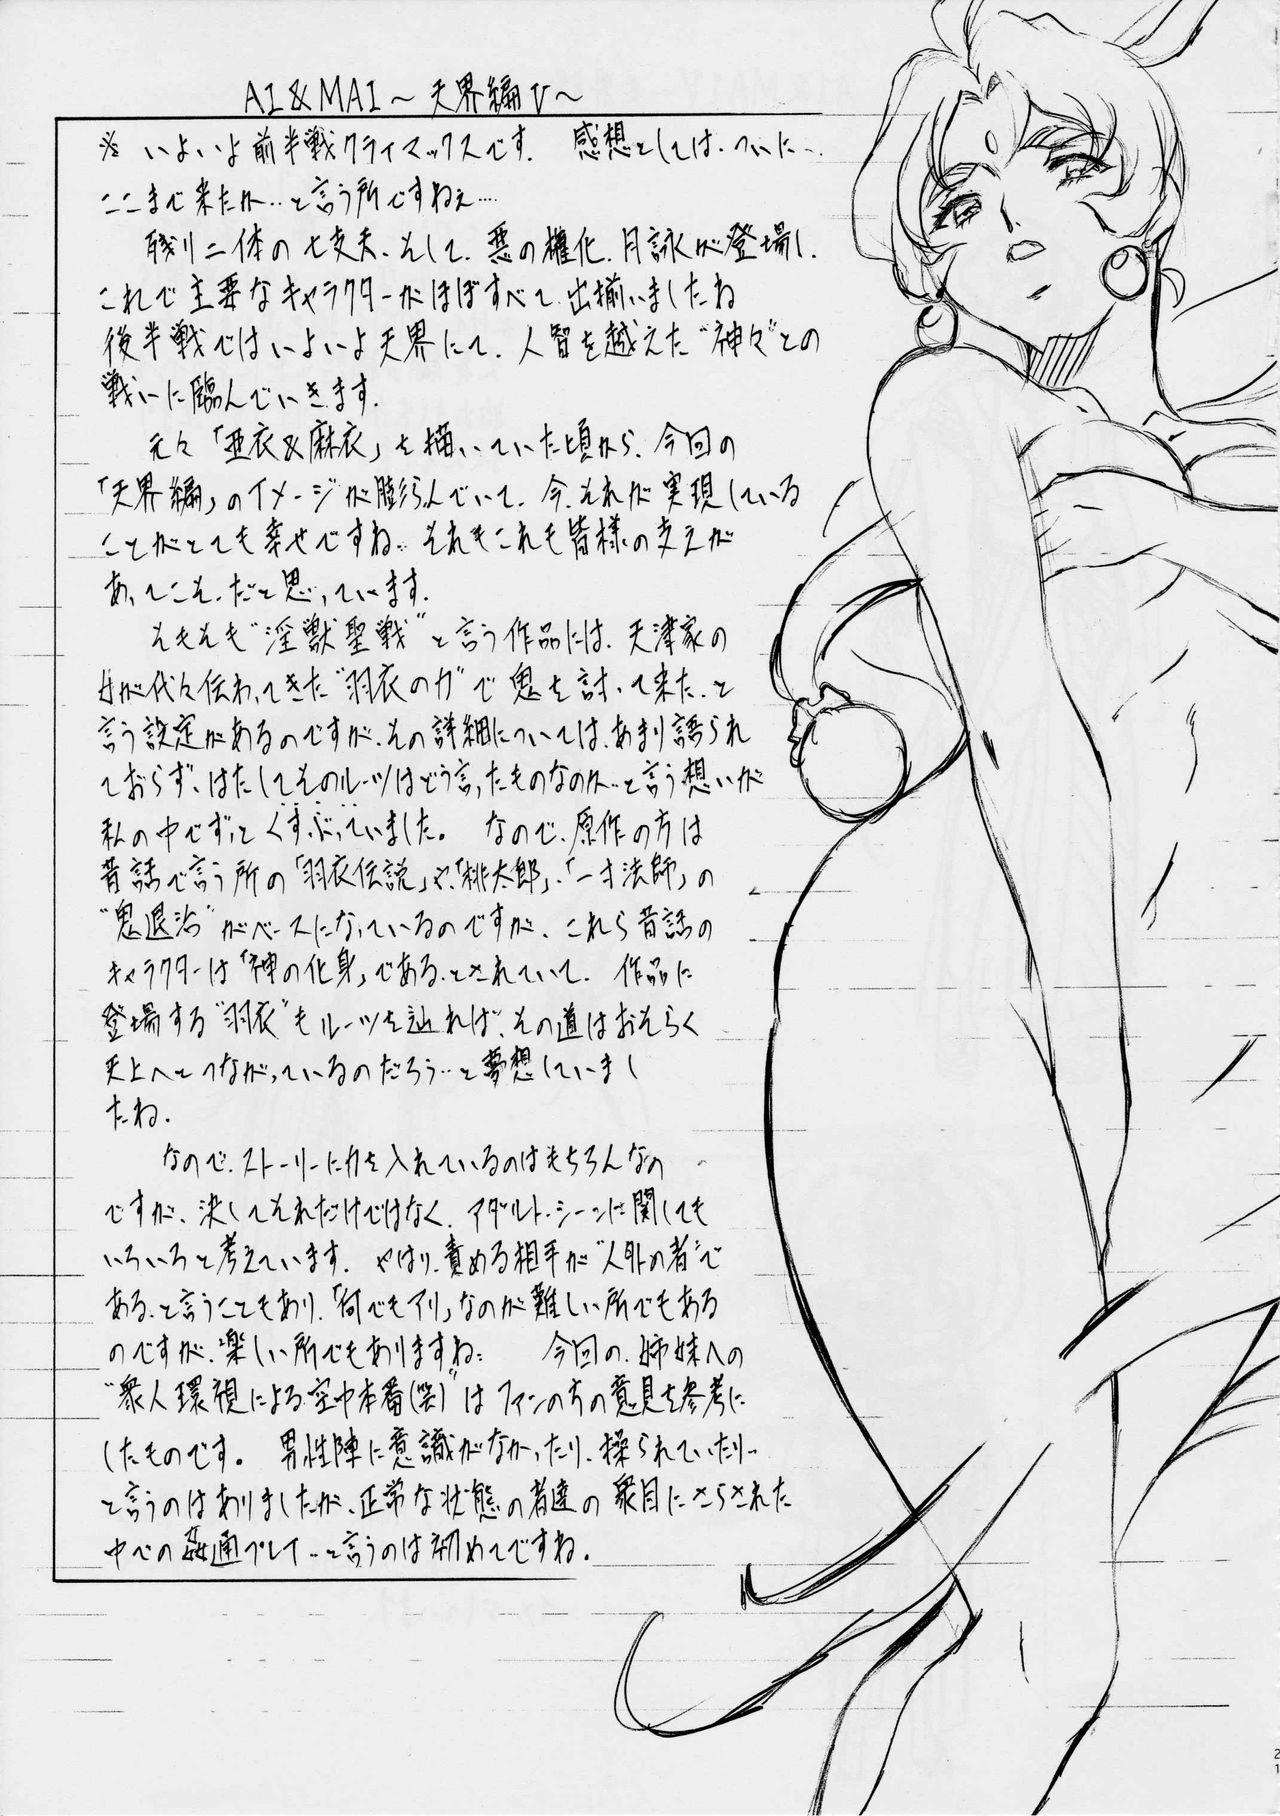 AI&MAI～天界編V～
※いよいよ前半戦クライマックスです. 感想としては、ついに‥
ここまで来たか…と言う所ですねぇ…
残り二体の七支夫、そして、悪の権化、月詠が登場し、
これで主要なキャラクターがほぼすべて出揃いましたね
後半戦ではいよいよ天界にて、人智を越えた“神々”との
戦いに臨んでいきます.
元々「亜衣&麻衣」を描いていた頃から、今回の
「天界編」のイメージが膨らんでいて、今、それが実現している
ことがとても幸せですね‥それもこれも皆様の支えが
あってこそ、だと思っています.
そもそも“淫獣聖戦”と言う作品には、天津家の
女が代々伝わってきた“羽衣の力”で鬼を討って来た、と
言う設定があるのですが、その詳細については、あまり語られ
ておらず、はたしてそのルーツはどう言ったものなのか…と言う想いが
私の中でずっとくすぶっていました。 なので、原作の方は
昔話で言う所の「羽衣伝説」や、「桃太郎」、「一寸法師」の
“鬼退治”がベースになっているのですが、これら昔話の
キャラクターは「神の化身」である、とされていて、作品に
登場する“羽衣”もルーツを辿れば、その道はおそらく
天上へとつながっているのだろう…と夢想していまし
たね.
なので、ストーリーに力を入れているのはもちろんなの
ですが、決してそれだけではなく、アダルト・シーンに関しても
いろいろと考えています. やはり、責める相手が“人外の者”で
ある、と言うこともあり、「何でもアリ」なのが難しい所でもある
のですが、楽しい所でもありますね‥ 今回の、姉妹への
“衆人環視による空中本番(笑)”はファンの方の意見を参考に
したものです。 男性陣に意識がなかったり、操られていたり…
と言うのはありましたが、正常な状態の者達の衆目にさらされた
中での姦通プレイ…と言うのは初めてですね.
21